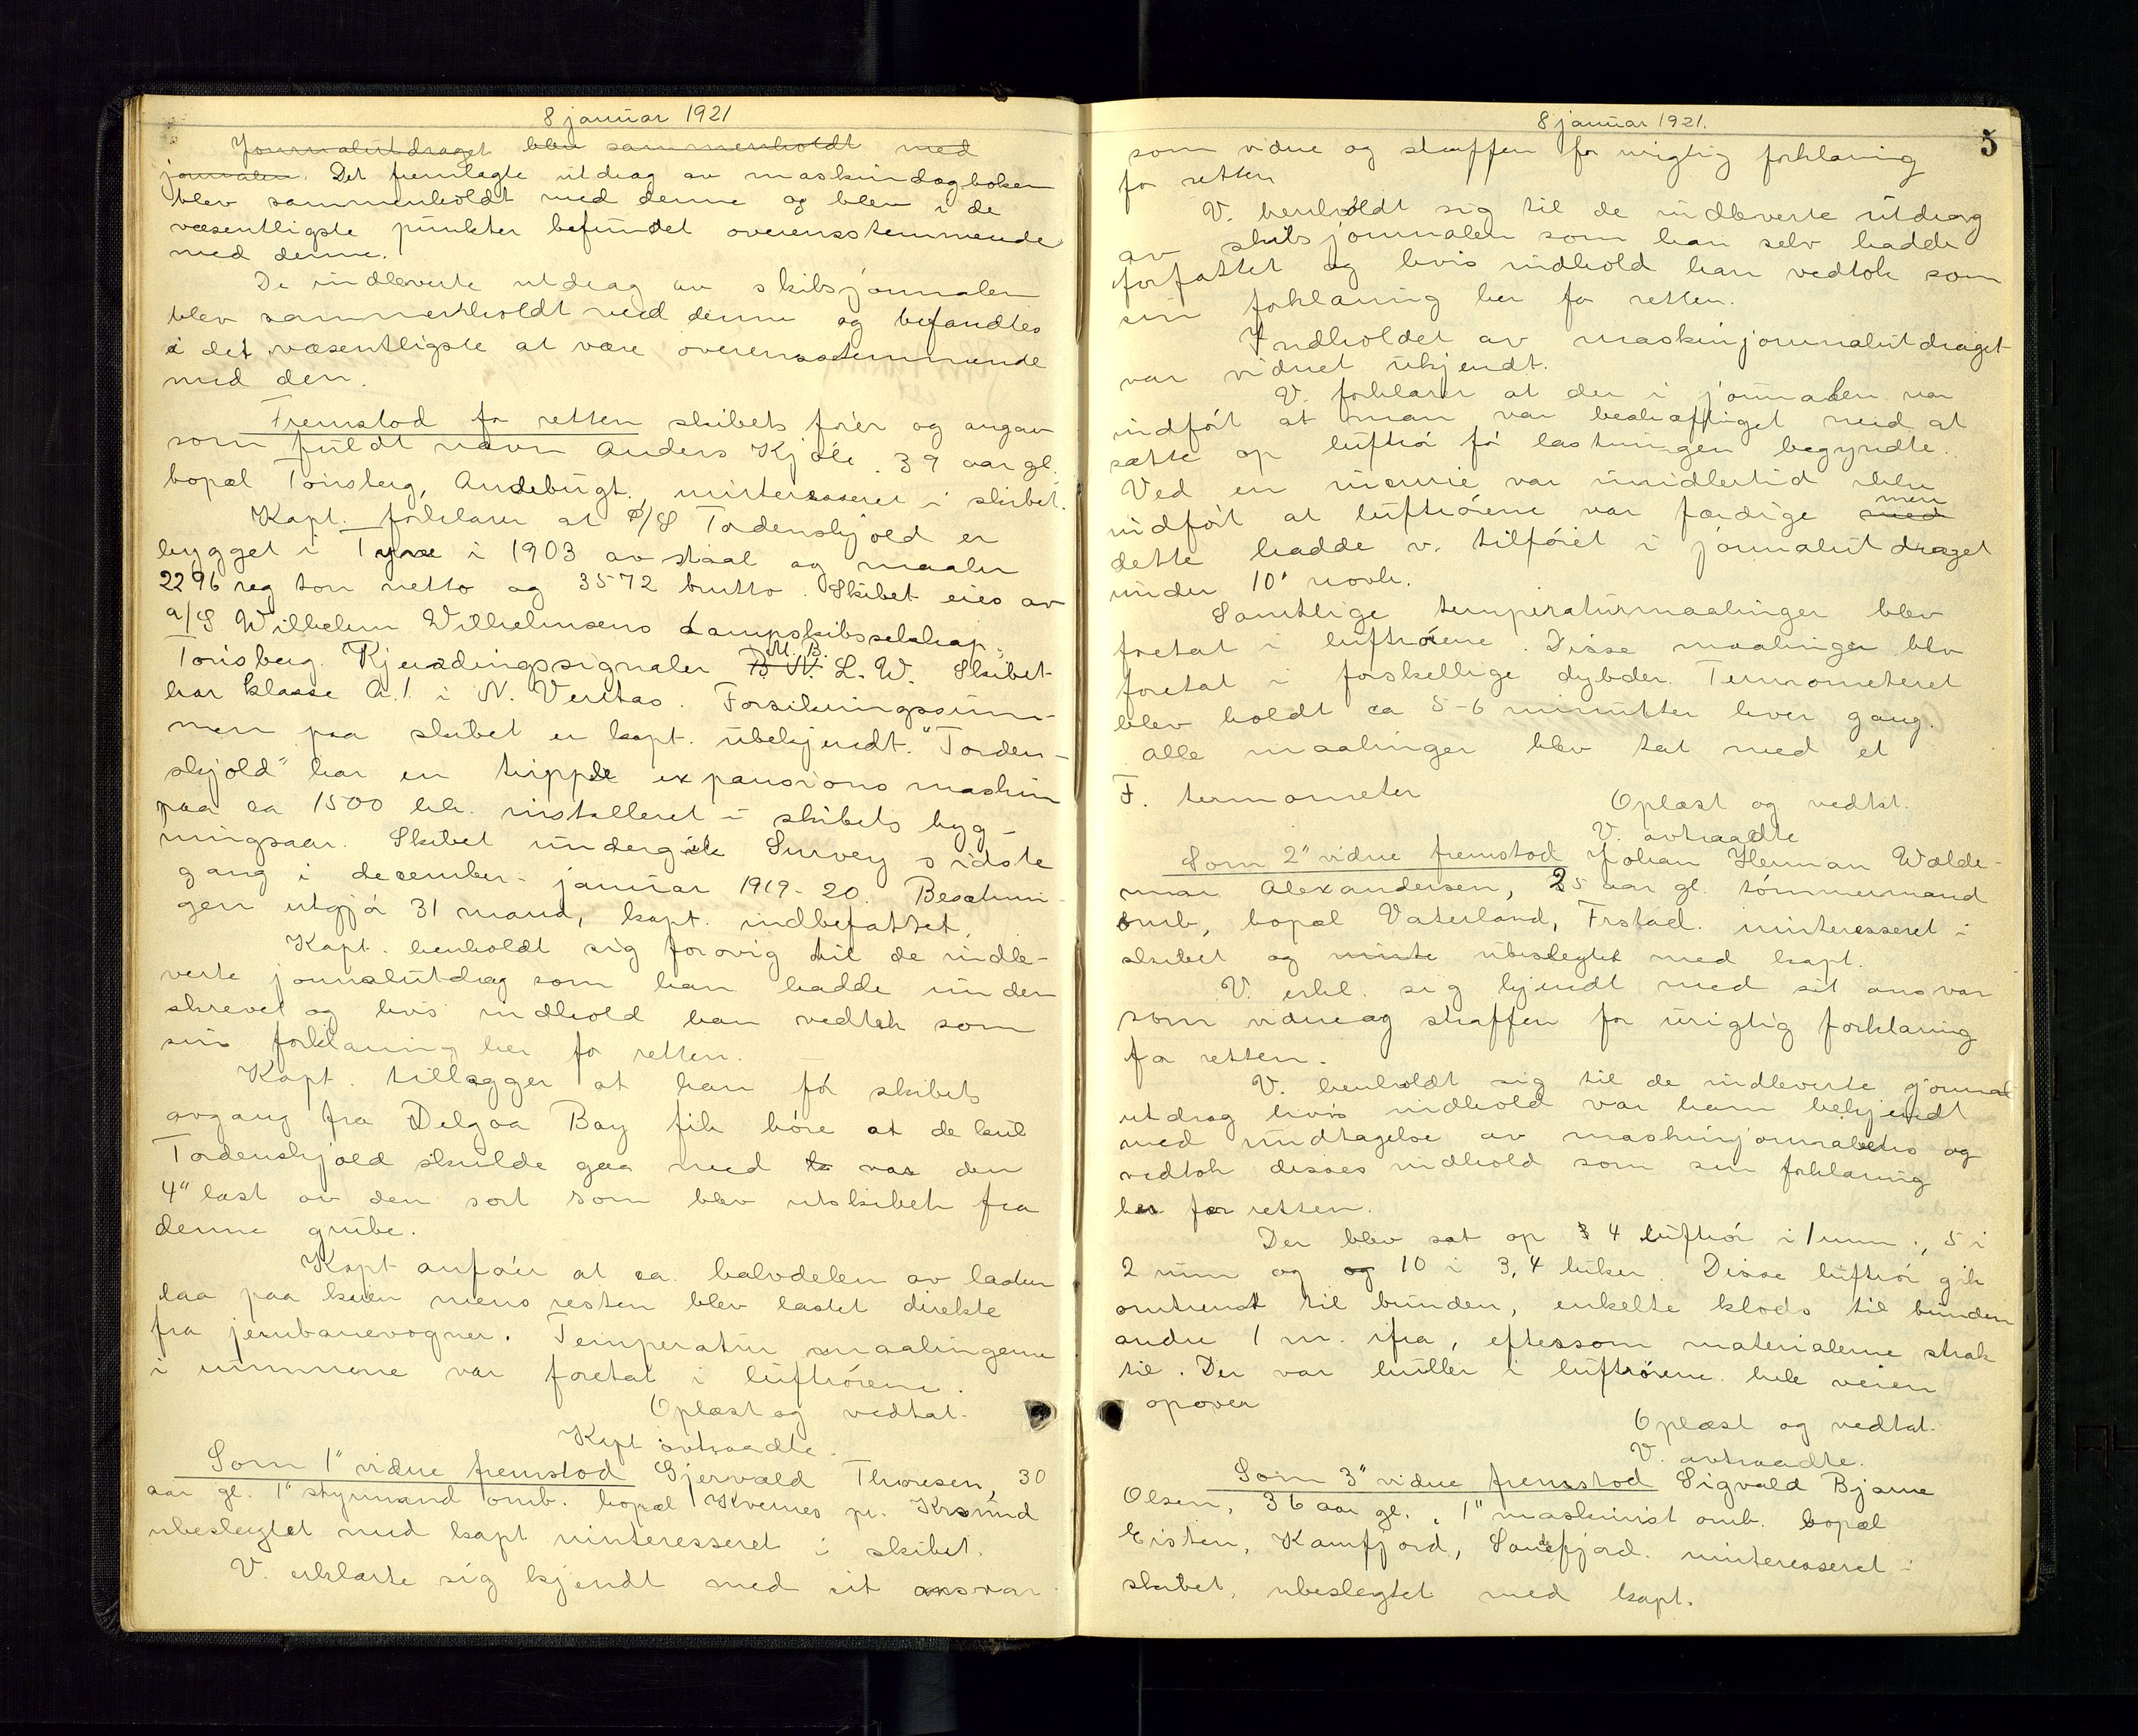 8 januar 1921
Journalutdraget blev sammenholdt med
journalen. Det fremlagte utdrag av maskindagboken
blev sammenholdt med denne og blev i de
væsentligste punkter befundet overensstemmende
med denne.
De indleverte utdrag av skibsjournalen
blev sammenholdt med denne og befandtes
i det væsentligste at være overensstemmende
med den.
Fremstod for retten skibets fører og angav
som fuldt navn Anders Kjøle. 39 aar gl.
bopæl Tønsberg, Andebugt, uinteressert i skibet.
Kapt. forklarer at D/S Tordenskjold er
bygget i Tyne i 1903 av staal og maaler
2296 reg ton netto og 3572 brutto. Skibet eies av
a/S Wilhelm Wilhelmsens dampskibsselskap,
Tønsberg. Kjendingssignaler B. N. M. B. L. W. Skibet
har klasse A.1. i N. Veritas. Forsikringssum-
men paa skibet er kapt. ubekjendt. "Torden-
skjold" har en tripple expansions maskin
paa ca 1500 hk. installeret i skibets byg-
ningsaar. Skibet undergik Survey sidste
gang i december-januar 1919-20. Besætnin-
gen utgjør 31 mand, kapt. indbefattet.
Kapt. henholdt sig forøvrig til de indle-
verte journalutdrag som han hadde under
skrevet og hvis indhold han vedtok som
sin forklaring her for retten.
Kapt. tillægger at han før skibets
avgang fra Delgoa Bay fik høre at de kul
Tordenskjold skulde gaa med var den
4" last av den sort som blev utskibet fra
denne grube.
Kapt anfører at ca. halvdelen av lasten
laa paa kaien mens resten blev lastet direkte
fra jernbanevogner. Temperatur maalingerne
i rummene var foretat i luftrørene.
Oplæst og vedtat.
Kapt avtraadte.
Som 1" vidne fremstod Gjervald Thoresen, 30
aar gl. 1" styrmand omb. bopæl Kvernes pr. Krsund
ubeslegtet med kapt uinteresseret i skibet.
V. erklærte sig kjendt med sit ansvar
8 januar 1921.
5
som vidne og straffen for urigtig forklaring
for retten
V. henholdt sig til de indleverte utdrag
av skibsjournalen som han selv hadde
forfattet og hvis indhold han vedtok som
sin forklaring her for retten.
Indholdet av maskinjournalutdraget
var vidnet ukjendt.
V. forklarer at der i journalen var
indført at man var beskjæftiget med at
sætte op luftrør før lastningen begyndte.
Ved en var imidlertid ikke
indført at luftrørene var færdige med men
dette hadde v. tilføiet i journalutdraget
under 10' novbr.
Samtlige temperaturmaalinger blev
foretat i luftrørene. Disse maalinger blev
foretat i forskellige dybder. Termometeret
blev holdt ca 5-6 minutter hver gang.
Alle maalinger blev tat med et
F. termometer
Oplæst og vedtat.
V. avtraadte
Som 2" vidne fremstod Johan Herman Walde-
mar Alexandersen, 25 aar gl. tømmermand
omb, bopæl Vaterland, Frstad. uinteresseret i
skibet og ubeslegtet med kapt.
V. erkl. sig kjendt med sit ansvar
som vidne og straffen for urigtig forklaring
for retten.
V. henholdt sig til de indleverte journal
utdrag hvis indhold var ham bekjendt
med undtagelse av maskinjournalens og
vedtok disses indhold som sin forklaring
her for retten.
Der blev sat op 4 luftrør i 1 rum., 5 i
2 rum og og 10 i 3, 4 luker. Disse luftrør gik
omtrent til bunden, enkelte klods til bunden
andre 1 m. ifra, eftersom materialerne strak
til. Der var huller i luftrørene hele veien
opover
Oplæst og vedtat.
V. avtraadte.
Som 3" vidne fremstod Sigvald Bjarne
Olsen, 36 aar gl., 1" maskinist omb. bopæl
Eisten, Kamfjord, Sandefjord. uinteresseret i
skibet, ubeslegtet med kapt.